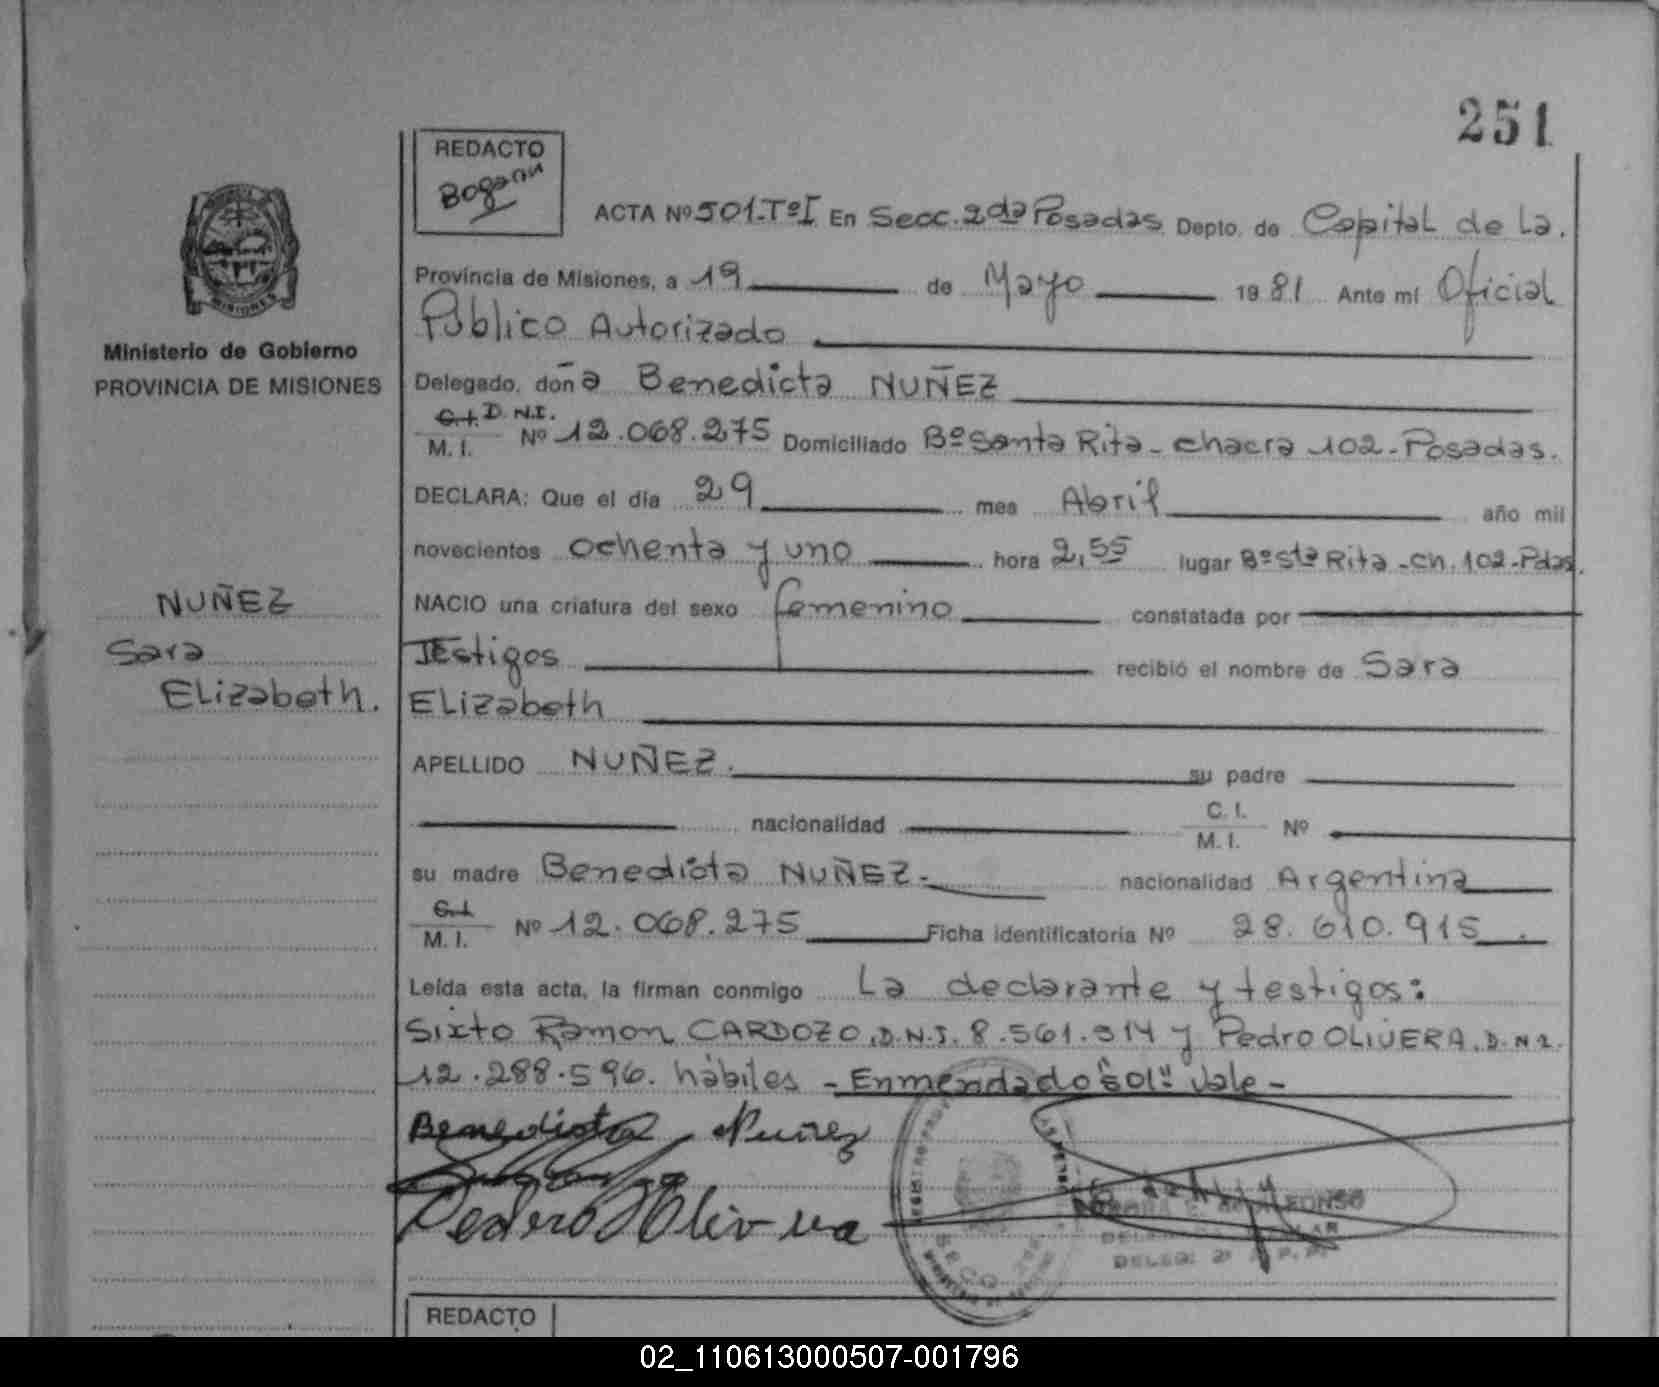 251
REDACTO
Bogarin
ACTA Nº 501-TºI En Secc. 2da Posadas Depto. de Capital de La.
Provincia de Misiones, a 19 de Mayo 1981 Ante mí Oficial
Público Autorizado
Ministerio de Gobierno
PROVINCIA DE MISIONES
Delegado, doña Benedicta NUÑEZ
C.I. D.N.I.
M. I. Nº 12.068.275 Domiciliado Bº Santa Rita - chacra 102 - Posadas.
DECLARA: Que el día 29 mes Abril año mil
novecientos ochenta y uno hora 2,55 lugar Bº Sta Rita - ch. 102 - Pdas.
NUÑEZ
Sara
Elizabeth.
NACIO una criatura del sexo femenino constatada por
Testigos recibió el nombre de Sara
Elizabeth
APELLIDO NUÑEZ. su padre
nacionalidad C. I. M. I. Nº
su madre Benedicta NUÑEZ.- nacionalidad Argentina
C.I. M. I. Nº 12.068.275 Ficha identificatoria Nº 28.610.915
Leída esta acta, la firman conmigo La declarante y testigos:
Sixto Ramon CARDOZO, D.N.I. 8.561.514 y Pedro OLIVERA, D.N.I.
12.288.596. hábiles - Enmendado "501" Vale -
Benedicta Nuñez
Pedro Olivera
REDACTO
02_110613000507-001796